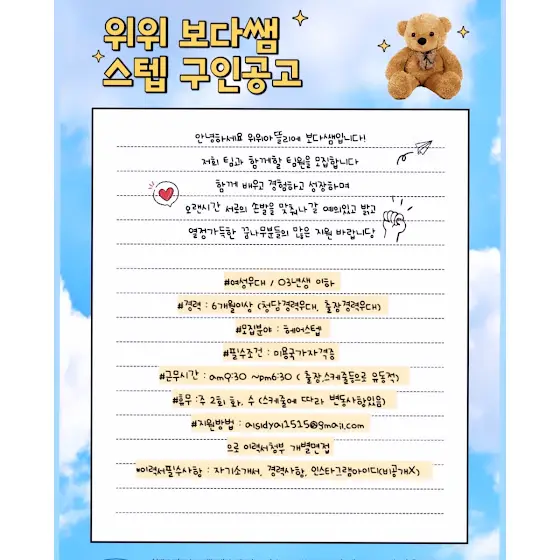 위위 보다쌤
스텝 구인공고
안녕하세요 위위아뜰리에 보다쌤입니다!
저희 팀과 함께할 팀원을 모집합니다
함께 배우고 경험하고 성장하며
오랜시간 서로의 손발을 맞춰나갈 예의있고 밝고
열정가득한 꿈나무분들의 많은 지원 바랍니당
#여성우대 / 03년생 이하
#경력 : 6개월이상 (청담경력우대, 출장경력우대)
#모집분야 : 헤어스텝
#필수조건 : 미용국가자격증
#근무시간 : am9:30 ~pm6:30 ( 출장,스케줄등으로 유동적)
#휴무 :주 2회 화, 수 (스케줄에 따라 변동사항있음)
#지원방법 : aisidyai1515@gmail.com
으로 이력서첨부 개별면접
*이력서필수사항 : 자기소개서, 경력사항, 인스타그램아이디(비공개X)